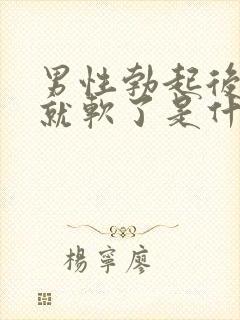 男性勃起後
就軟了是什
楊寧廖